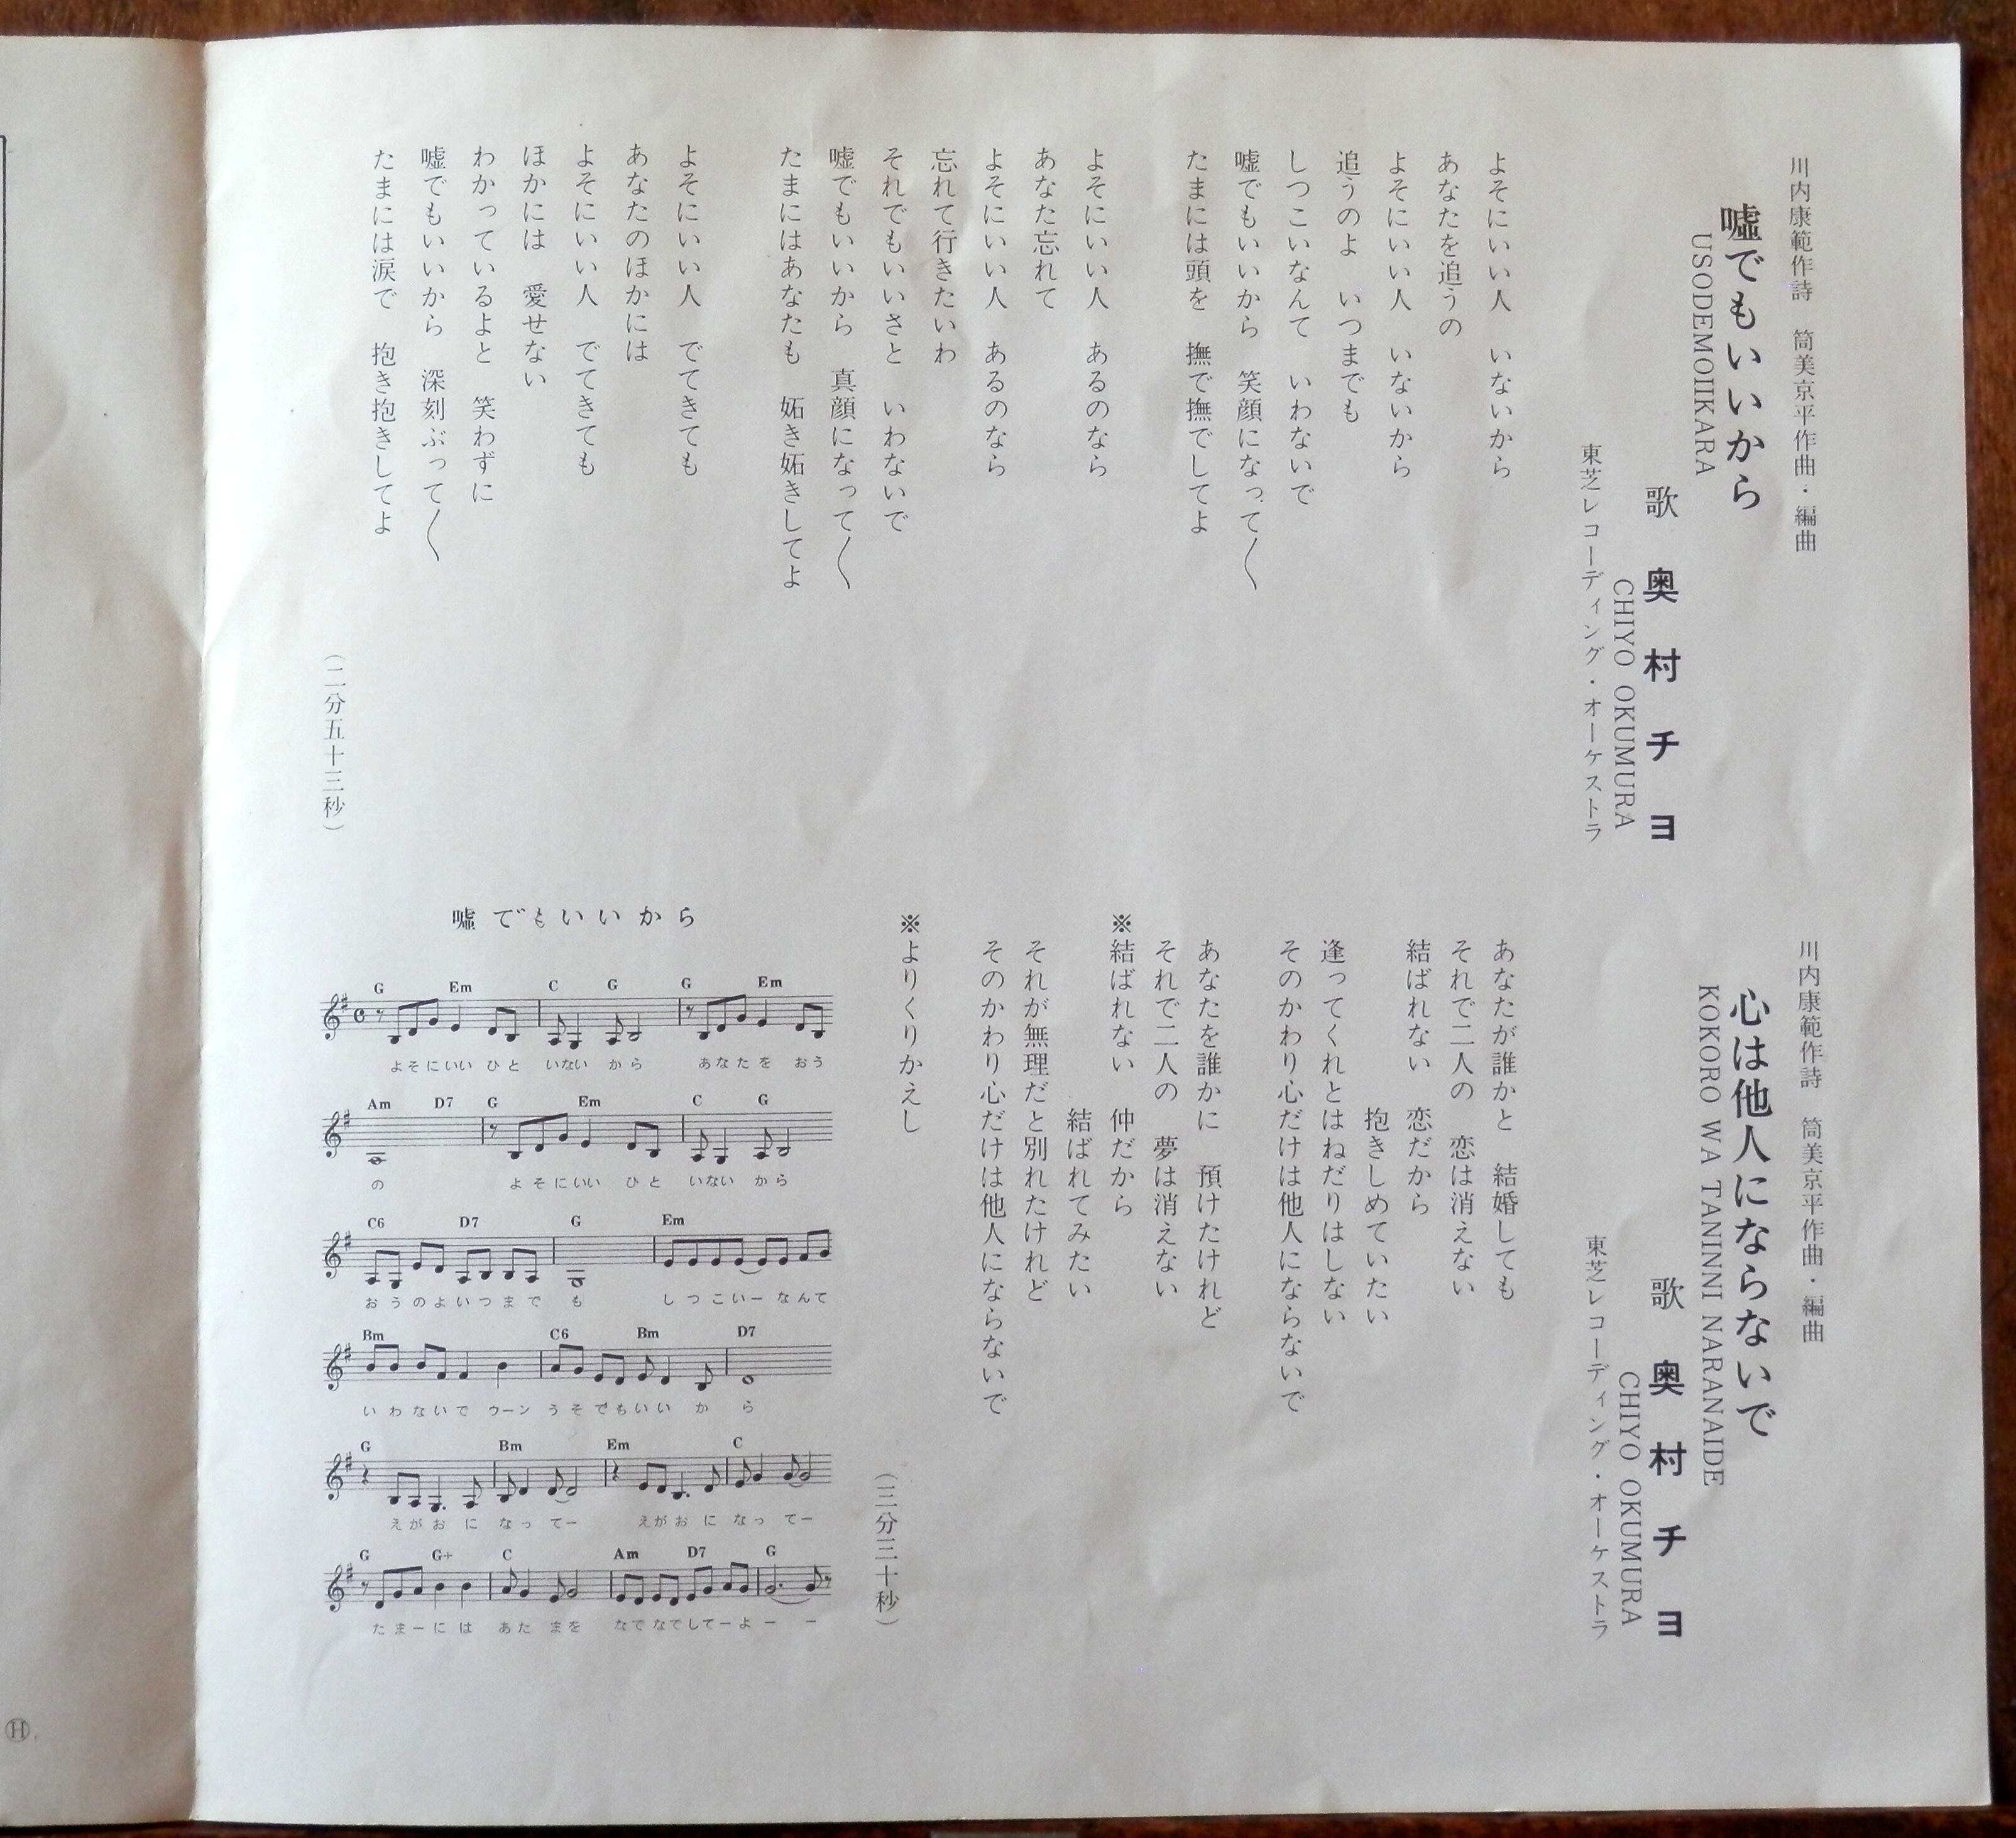 川内康範作詩　筒美京平作曲・編曲
嘘でもいいから
USODEMOIIKARA
歌　奥村チヨ
CHIYO OKUMURA
東芝レコーディング・オーケストラ
よそにいい人　いないから
あなたを追うの
よそにいい人　いないから
追うのよ　いつまでも
しつこいなんて　いわないで
嘘でもいいから　笑顔になって〱
たまには頭を　撫で撫でしてよ
よそにいい人　あるのなら
あなた忘れて
よそにいい人　あるのなら
忘れて行きたいわ
それでもいいさと　いわないで
嘘でもいいから　真顔になって〱
たまにはあなたも　妬き妬きしてよ
よそにいい人　でてきても
あなたのほかには
よそにいい人　でてきても
ほかには　愛せない
わかっているよと　笑わずに
嘘でもいいから　深刻ぶって〱
たまには涙で　抱き抱きしてよ
（二分五十三秒）
川内康範作詩　筒美京平作曲・編曲
心は他人にならないで
KOKORO WA TANINNI NARANAIDE
歌　奥村チヨ
CHIYO OKUMURA
東芝レコーディング・オーケストラ
あなたが誰かと　結婚しても
それで二人の　恋は消えない
結ばれない　恋だから
抱きしめていたい
逢ってくれとはねだりはしない
そのかわり心だけは他人にならないで
あなたを誰かに　預けたけれど
それで二人の　夢は消えない
※結ばれない　仲だから
結ばれてみたい
それが無理だと別れたけれど
そのかわり心だけは他人にならないで
※よりくりかえし
（三分三十秒）
嘘でもいいから
G Em C G G Em
よそにいい ひと いない から あなたを おう
Am D7 G Em C G
の よそにいい ひと いない から
C6 D7 G Em
おうのよいつまで も しつこいー なんて
Bm C6 Bm D7
いわないで ウーン うそでもいい か ら
G Bm Em C
えがお に なっ てー えがお に なっ てー
G G+ C Am D7 G
たまーに は あた まを なでなでしてーよ ー ー
Ⓗ.